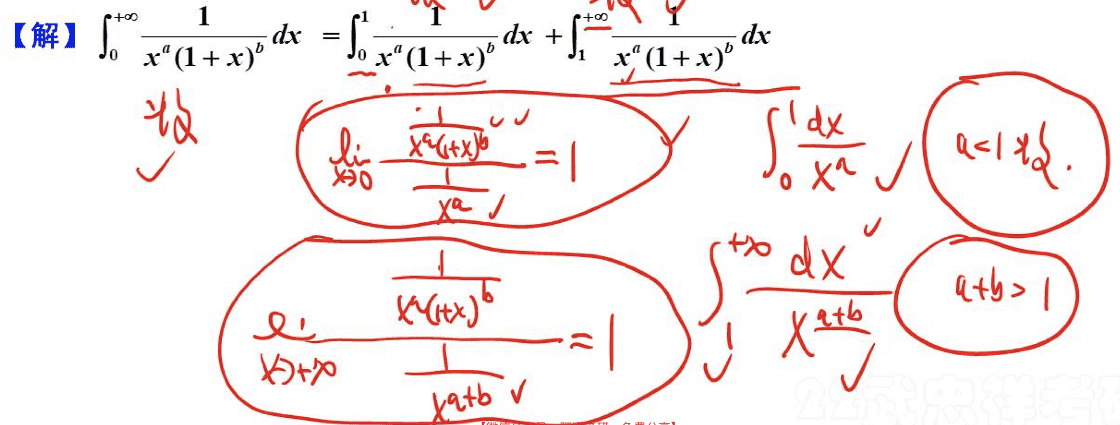 【解】 ∫₀^{+∞} 1/(xᵃ(1+x)ᵇ) dx = ∫₀¹ 1/(xᵃ(1+x)ᵇ) dx + ∫₁^{+∞} 1/(xᵃ(1+x)ᵇ) dx
收
lim_{x→0} (1/(xᵃ(1+x)ᵇ))/(1/xᵃ) = 1 ∫₀¹ dx/xᵃ a<1 收.
lim_{x→+∞} (1/(xᵃ(1+x)ᵇ))/(1/x^{a+b}) = 1 ∫₁^{+∞} dx/x^{a+b} a+b>1